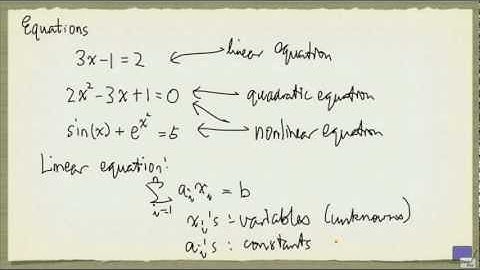 Equations
3x-1=2 linear equation
2x²-3x+1=0 quadratic equation
sin(x)+e^x²=5 nonlinear equation
Linear equation:
∑ᵢ₌₁ aᵢxᵢ = b
xᵢ's : variables (unknowns)
aᵢ's : constants